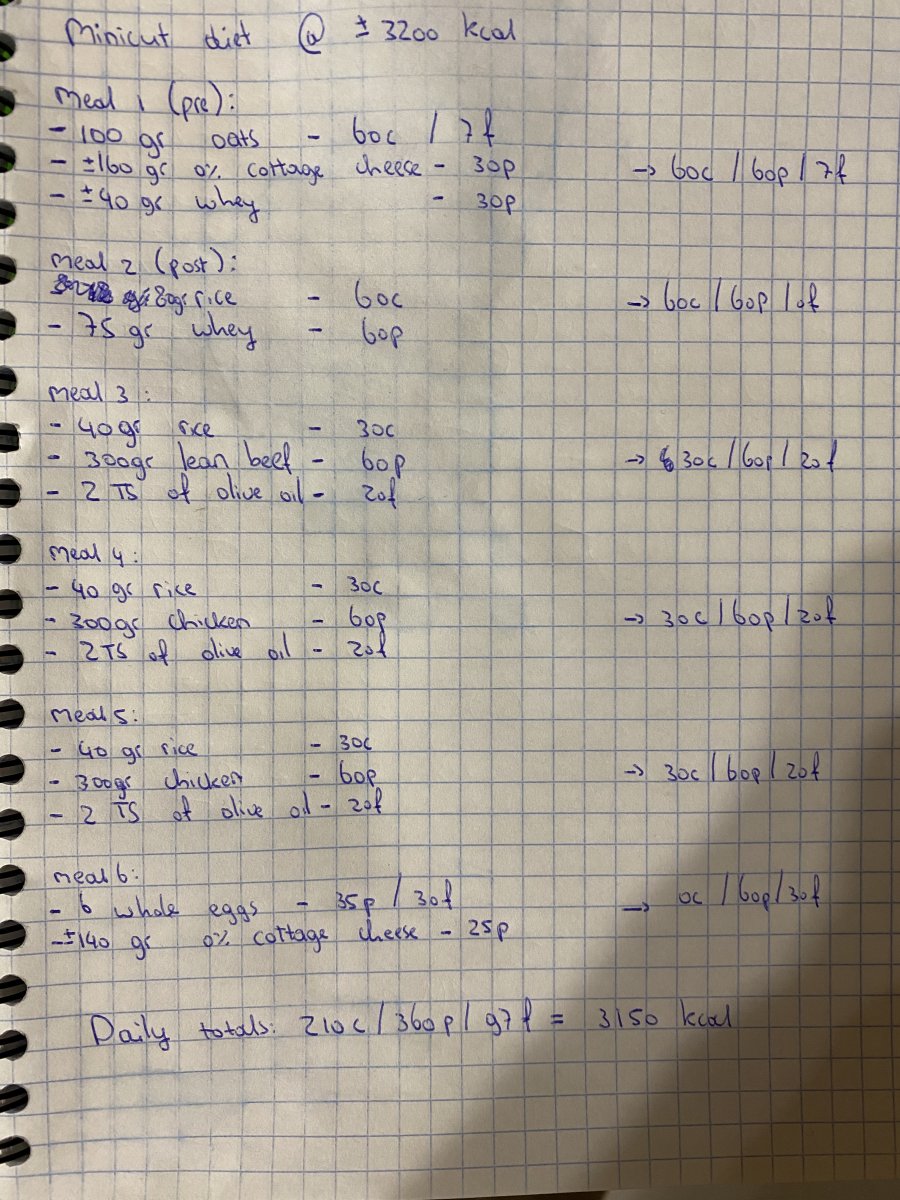 Minicut diet @ ± 3200 kcal
Meal 1 (pre):
- 100 gr oats - 60c / 7f
- ±160 gr 0% cottage cheese - 30p → 60c / 60p / 7f
- ±40 gr whey - 30p
Meal 2 (post):
80gr rice - 60c → 60c / 60p / 0f
- 75 gr whey - 60p
Meal 3:
- 40gr rice - 30c
- 300gr lean beef - 60p → 30c / 60p / 20f
- 2 TS of olive oil - 20f
Meal 4:
- 40 gr rice - 30c
- 300gr chicken - 60p → 30c / 60p / 20f
- 2TS of olive oil - 20f
Meal 5:
- 40 gr rice - 30c
- 300gr chicken - 60p → 30c / 60p / 20f
- 2 TS of olive oil - 20f
Meal 6:
- 6 whole eggs - 35p / 30f → 0c / 60p / 30f
- ±140 gr 0% cottage cheese - 25p
Daily totals: 210c / 360p / 97f = 3150 kcal